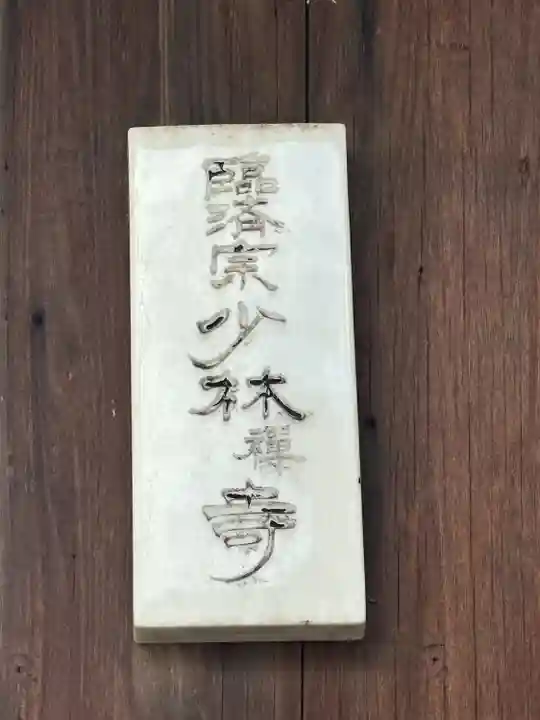 臨済宗少林禅寺